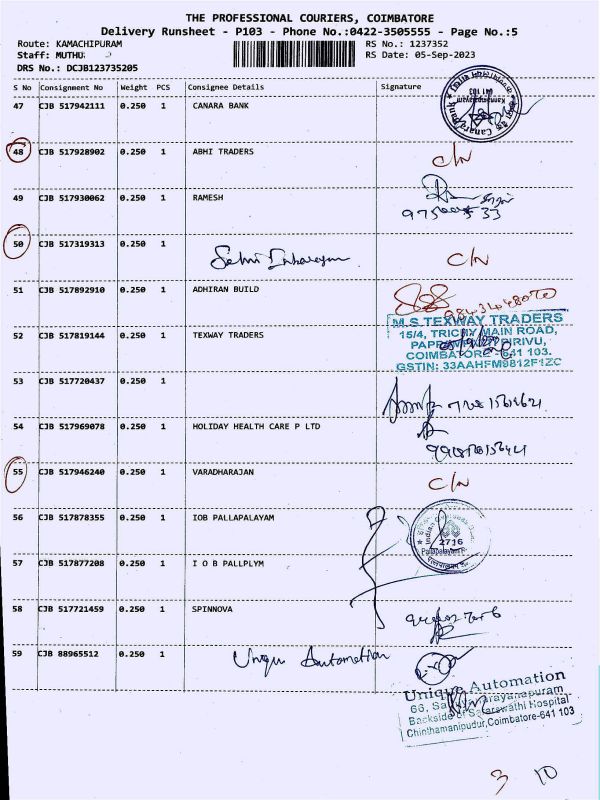 THE PROFESSIONAL COURIERS, COIMBATORE
Delivery Runsheet - P103 - Phone No.:0422-3505555 - Page No.:5
Route: KAMACHIPURAM RS No.: 1237352
Staff: MUTHU RS Date: 05-Sep-2023
DRS No.: DCJB123735205
S No Consignment No Weight PCS Consignee Details Signature
47 CJB 517942111 0.250 1 CANARA BANK
48 CJB 517928902 0.250 1 ABHI TRADERS C/N
49 CJB 517930062 0.250 1 RAMESH
50 CJB 517319313 0.250 1 C/N
51 CJB 517892910 0.250 1 ADHIRAN BUILD
52 CJB 517819144 0.250 1 TEXWAY TRADERS
M.S.TEXWAY TRADERS
15/4, TRICHY MAIN ROAD,
COIMBATORE - 641 103.
GSTIN: 33AAHFM9812F1ZC
53 CJB 517720437 0.250 1
54 CJB 517969078 0.250 1 HOLIDAY HEALTH CARE P LTD
55 CJB 517946240 0.250 1 VARADHARAJAN C/N
56 CJB 517878355 0.250 1 IOB PALLAPALAYAM
2716
57 CJB 517877208 0.250 1 I O B PALLPLYM
58 CJB 517721459 0.250 1 SPINNOVA
59 CJB 88965512 0.250 1 Unique Automation
Unique Automation
Backside of Saraswathi Hospital
Chinthamanipudur, Coimbatore-641 103
3 10